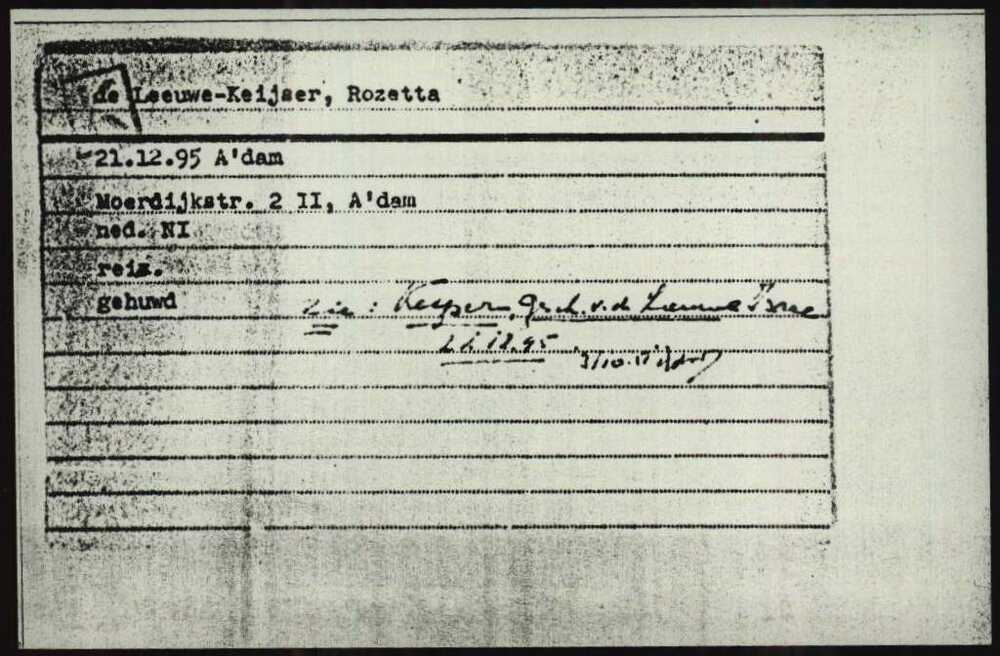 de Leeuwe-Keijser, Rozetta
21.12.95 A'dam
Moerdijkstr. 2 II, A'dam
ned. NI
reiz.
gehuwd
zie: Keyser, gesch. v. d. Leeuwe
21.12.95